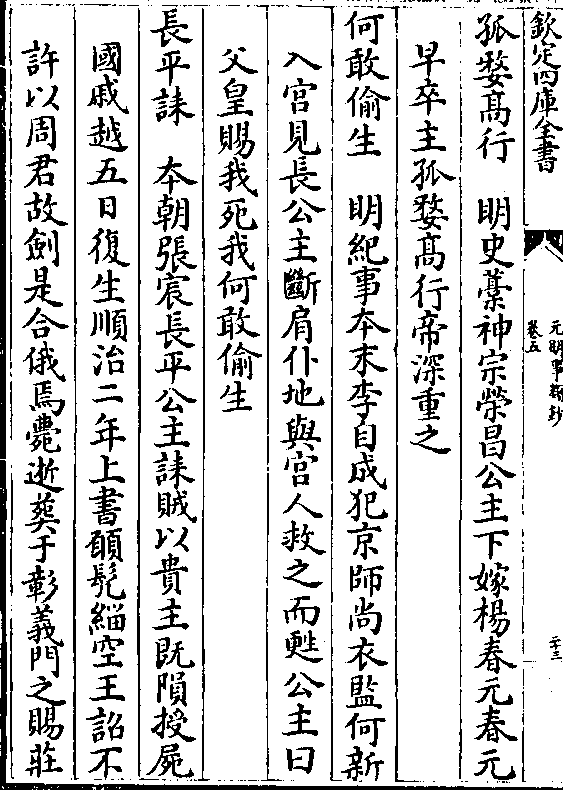 欽定四庫全書
元明事類鈔
卷五
二十三
孤嫠髙行　明史藳神宗榮昌公主下嫁楊春元春元
早卒主孤嫠髙行帝深重之
何敢偷生　明紀事夲末李自成犯京師尚衣監何新
入宫見長公主斷肩仆地與宫人救之而甦公主曰
父皇賜我死我何敢偷生
長平誄　夲朝張宸長平公主誄賊以貴主既隕授屍
國戚越五日復生順治二年上書願髠緇空王詔不
許以周君故劍是合俄焉薨逝葬于彰義門之賜莊